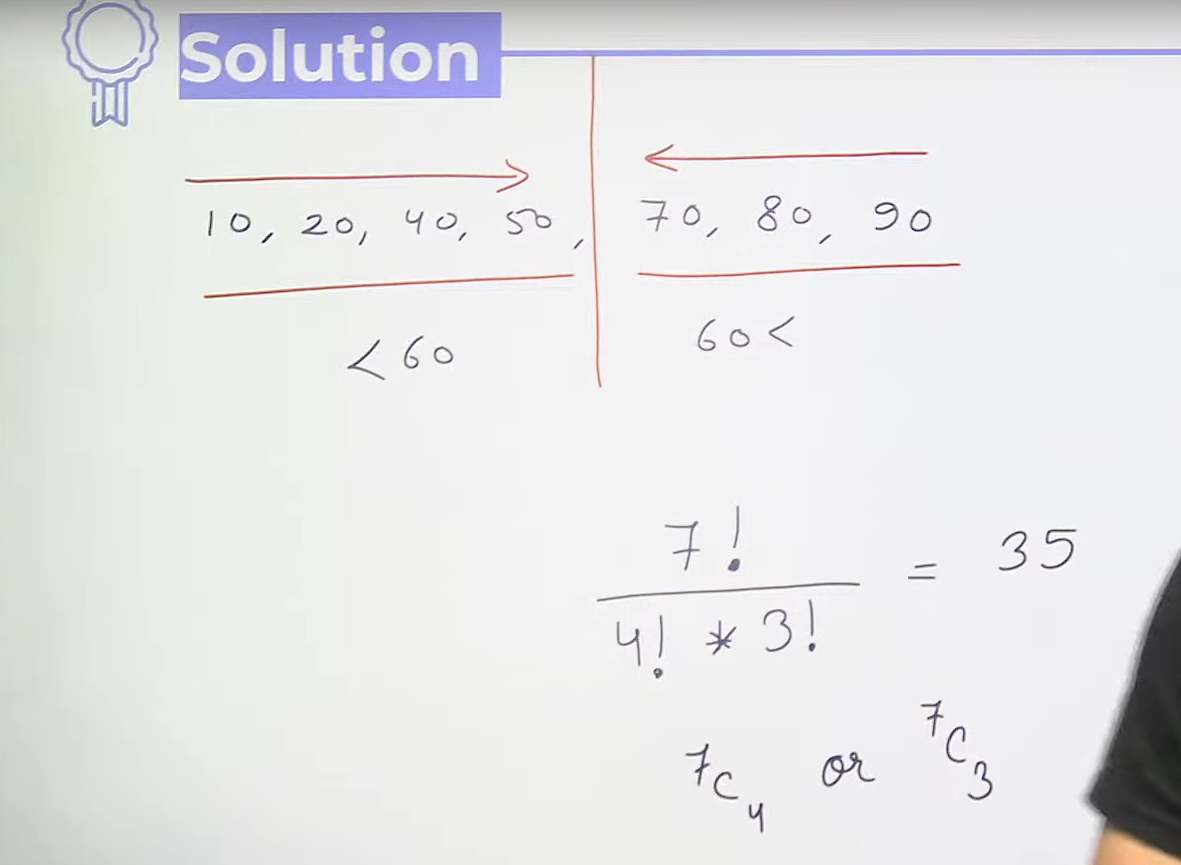 Solution
10, 20, 40, 50, 70, 80, 90
<60 60<
7!
4! * 3!
= 35
7C4 or 7C3